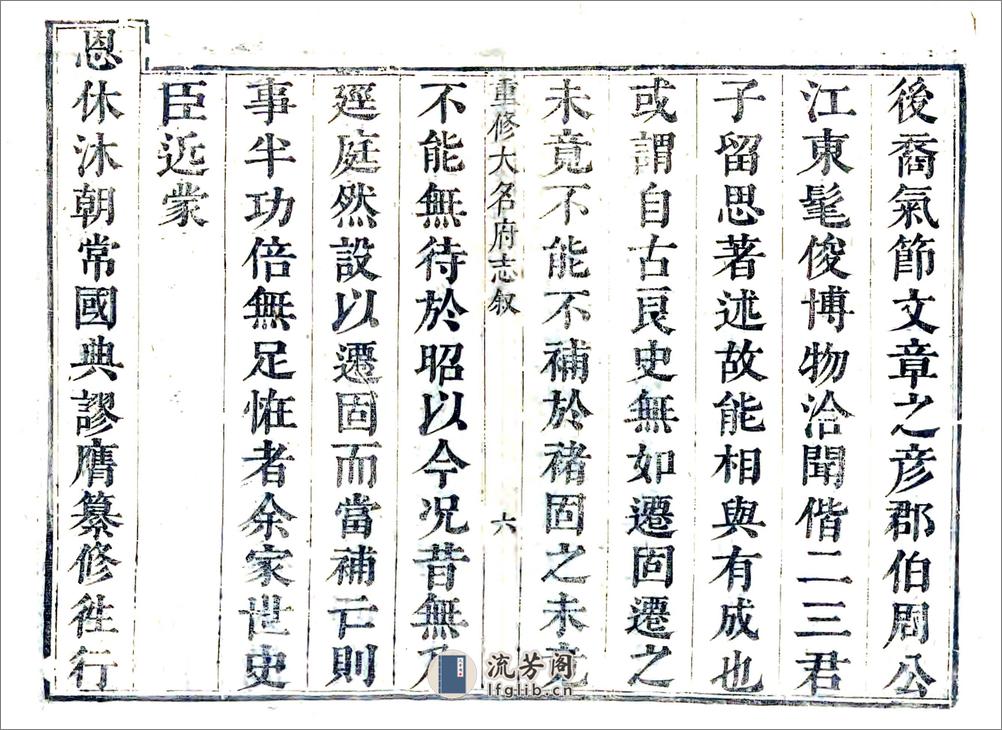 後裔氣節文章之彦郡伯周公
江東髦俊博物洽聞偕二三君
子留思著述故能相與有成也
或謂自古良史無如遷固遷之
未竟不能不補於褚固之未竟
重修大名府志叙
六
不能無待於昭以今況昔無乃
逕庭然設以遷固而當補亡則
事半功倍無足恠者余家世史
臣近蒙
恩休沐朝常國典謬膺纂修徃行
流芳阁
lfglib.cn